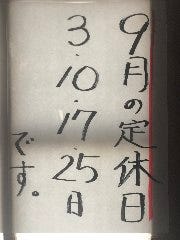 9月の定休日
3.10.17.25日
です。